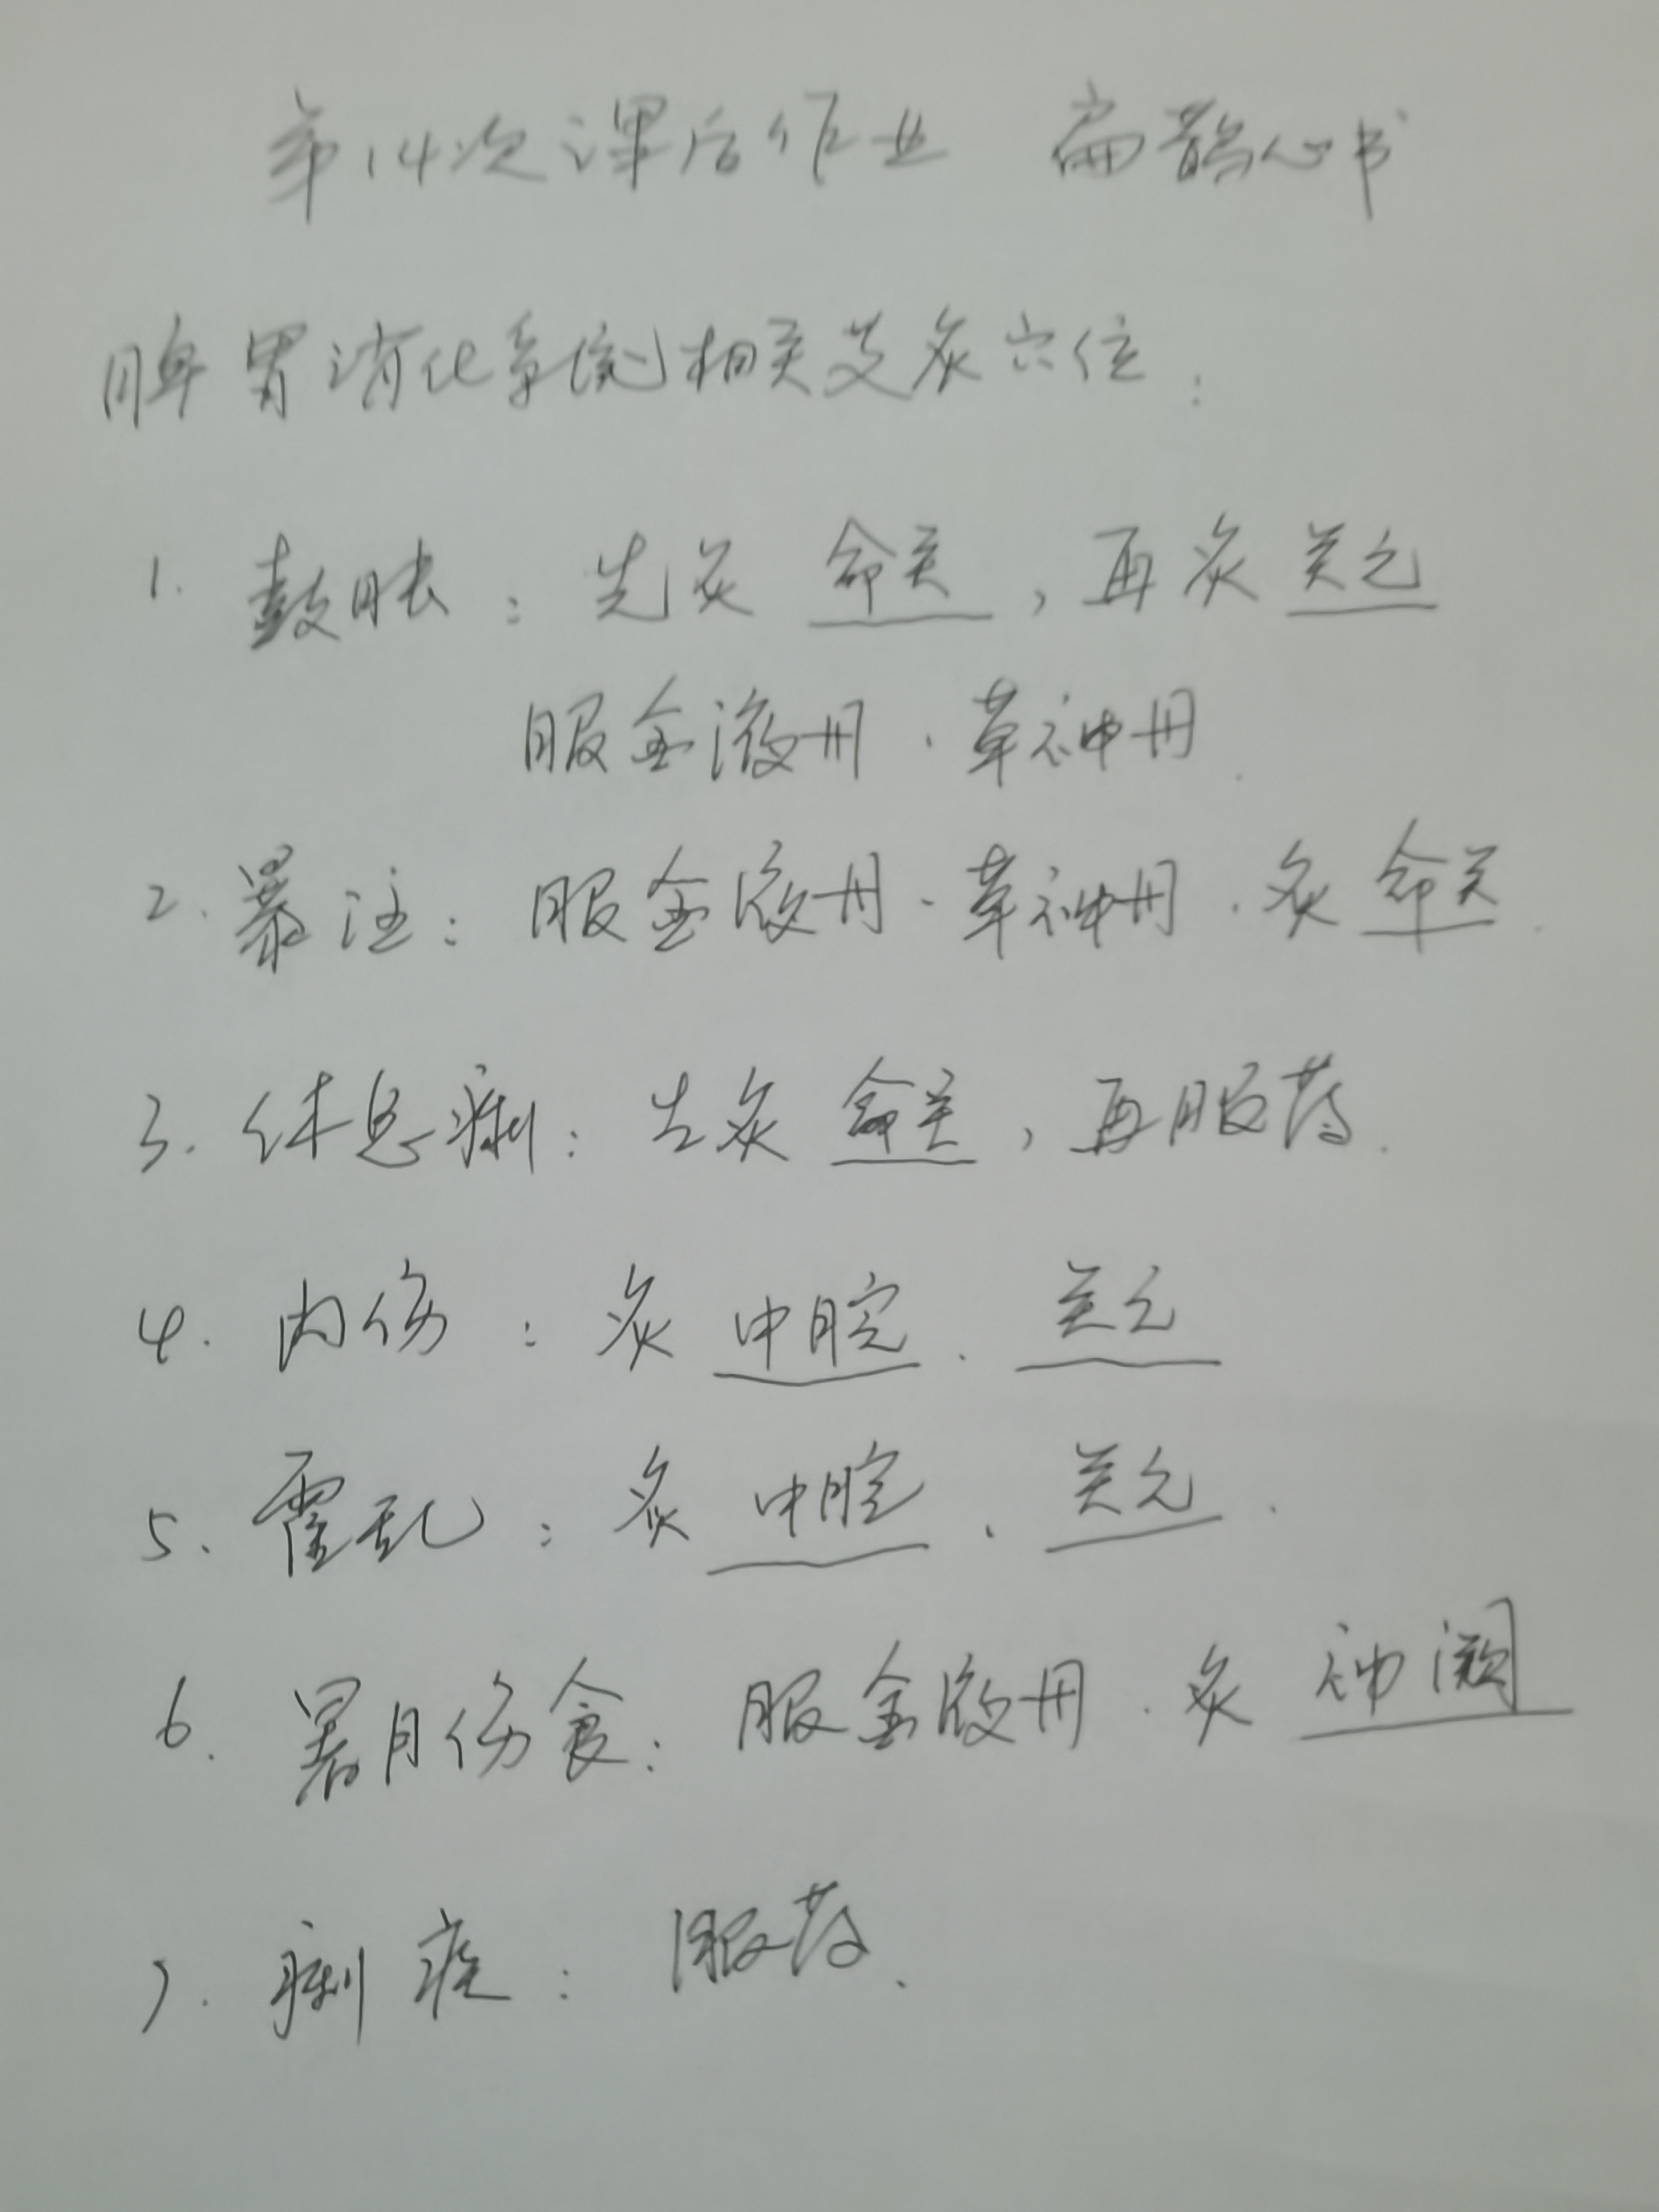 第14次课后作业 扁鹊心书
脾胃消化系统相关艾灸穴位:
1. 鼓胀:先灸 命关,再灸 关元
服金液丹、草神丹.
2. 暴注:服金液丹、草神丹.灸 命关.
3. 休息痢:先灸 命关,再服药.
4. 内伤:灸 中腔、关元
5. 霍乱:灸 中腔、关元.
6. 暑月伤食:服金液丹.灸 神阙
7. 痢疾:服药.